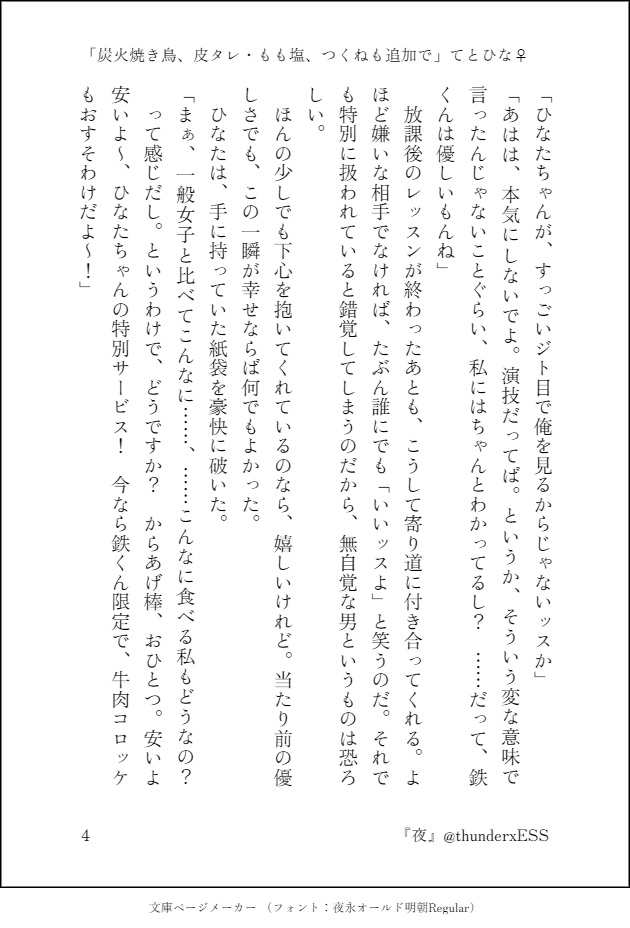 「炭火焼き鳥、皮タレ・もも塩、つくねも追加で」てとひな♀
「ひなたちゃんが、すっごいジト目で俺を見るからじゃないッスか」
「あはは、本気にしないでよ。演技だってば。というか、そういう変な意味で
言ったんじゃないことぐらい、私にはちゃんとわかってるし？　……だって、鉄
くんは優しいもんね」
　放課後のレッスンが終わったあとも、こうして寄り道に付き合ってくれる。よ
ほど嫌いな相手でなければ、たぶん誰にでも「いいッスよ」と笑うのだ。それで
も特別に扱われていると錯覚してしまうのだから、無自覚な男というものは恐ろ
しい。
　ほんの少しでも下心を抱いてくれているのなら、嬉しいけれど。当たり前の優
しさでも、この一瞬が幸せならば何でもよかった。
　ひなたは、手に持っていた紙袋を豪快に破いた。
「まぁ、一般女子と比べてこんなに……、……こんなに食べる私もどうなの？
　って感じだし。というわけで、どうですか？　からあげ棒、おひとつ。安いよ
安いよ〜、ひなたちゃんの特別サービス！　今なら鉄くん限定で、牛肉コロッケ
もおすそわけだよ〜！」
『夜』@thunderxESS
4
文庫ページメーカー （フォント：夜永オールド明朝Regular）